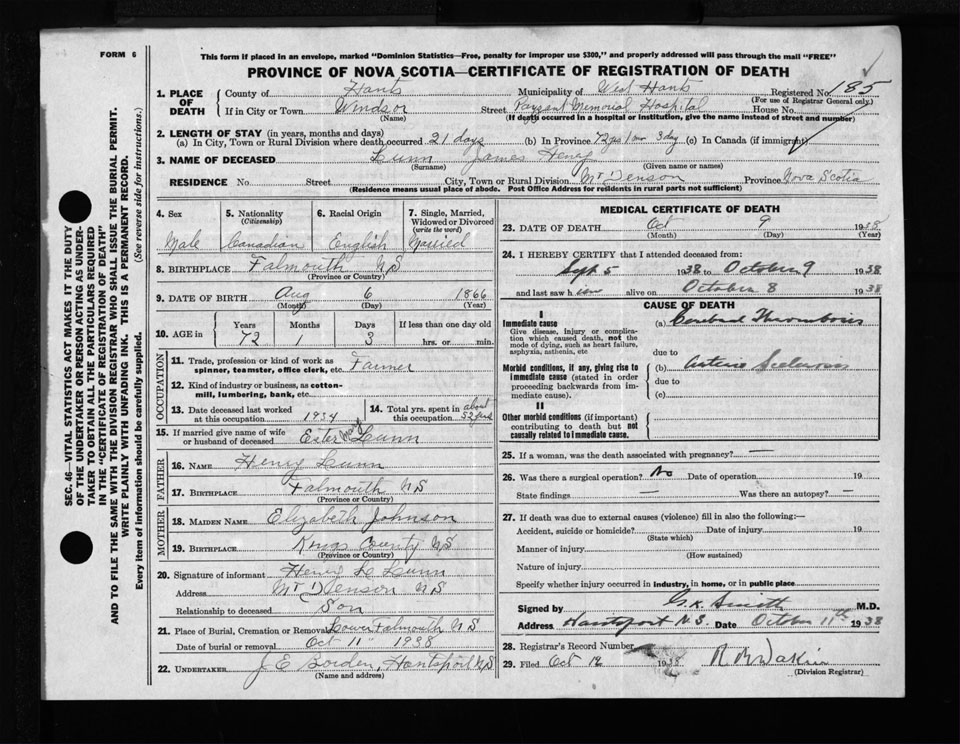 FORM 6
This form if placed in an envelope, marked "Dominion Statistics—Free, penalty for improper use $300," and properly addressed will pass through the mail "FREE"
PROVINCE OF NOVA SCOTIA—CERTIFICATE OF REGISTRATION OF DEATH
SEC. 46—VITAL STATISTICS ACT MAKES IT THE DUTY
OF THE UNDERTAKER OR PERSON ACTING AS UNDER-
TAKER TO OBTAIN ALL THE PARTICULARS REQUIRED
IN THE "CERTIFICATE OF REGISTRATION OF DEATH"
AND TO FILE THE SAME WITH THE DIVISION REGISTRAR WHO SHALL ISSUE THE BURIAL PERMIT.
WRITE PLAINLY WITH UNFADING INK. THIS IS A PERMANENT RECORD.
Every item of information should be carefully supplied. (See reverse side for instructions.)
1. PLACE OF DEATH
County of Hants Municipality of West Hants Registered No. 185
(For use of Registrar General only.)
If in City or Town Windsor Street Payzant Memorial Hospital House No.
(Name) (If death occurred in a hospital or institution, give the name instead of street and number)
2. LENGTH OF STAY (in years, months and days)
(a) In City, Town or Rural Division where death occurred 21 days (b) In Province 72 yrs 1 mon 3 day (c) In Canada (if immigrant)
3. NAME OF DECEASED Lunn James Henry
(Surname) (Given name or names)
RESIDENCE No. Street City, Town or Rural Division Mt Denson Province Nova Scotia
(Residence means usual place of abode. Post Office Address for residents in rural parts not sufficient)
4. Sex Male
5. Nationality (Citizenship) Canadian
6. Racial Origin English
7. Single, Married, Widowed or Divorced (write the word) Married
8. BIRTHPLACE Falmouth NS
(Province or Country)
9. DATE OF BIRTH Aug 6 1866
(Month) (Day) (Year)
10. AGE in Years 72 Months 1 Days 3 If less than one day old hrs. or min.
OCCUPATION
11. Trade, profession or kind of work as spinner, teamster, office clerk, etc. Farmer
12. Kind of industry or business, as cotton-mill, lumbering, bank, etc.
13. Date deceased last worked at this occupation 1934
14. Total yrs. spent in this occupation about 52 yrs
15. If married give name of wife or husband of deceased Ester Lunn
FATHER
16. NAME Henry Lunn
17. BIRTHPLACE Falmouth NS
(Province or Country)
MOTHER
18. MAIDEN NAME Elizabeth Johnson
19. BIRTHPLACE Kings County NS
(Province or Country)
20. Signature of informant Henry L Lunn
Address Mt Denson NS
Relationship to deceased Son
21. Place of Burial, Cremation or Removal Lower Falmouth NS
Date of burial or removal Oct 11 1938
22. UNDERTAKER J E Borden, Hantsport NS
(Name and address)
MEDICAL CERTIFICATE OF DEATH
23. DATE OF DEATH Oct 9 1938
(Month) (Day) (Year)
24. I HEREBY CERTIFY that I attended deceased from:
Sept 5 1938 to October 9 1938
and last saw him alive on October 8 1938
CAUSE OF DEATH
I
Immediate cause
Give disease, injury or complication which caused death, not the mode of dying, such as heart failure, asphyxia, asthenia, etc
(a) Cerebral Thrombosis
due to
Morbid conditions, if any, giving rise to immediate cause (stated in order proceeding backwards from immediate cause).
(b) Arterio Sclerosis
due to
(c)
II
Other morbid conditions (if important) contributing to death but not causally related to immediate cause.
25. If a woman, was the death associated with pregnancy? —
26. Was there a surgical operation? No Date of operation 19
State findings — Was there an autopsy? —
27. If death was due to external causes (violence) fill in also the following:—
Accident, suicide or homicide? Date of injury 19
(State which)
Manner of injury
(How sustained)
Nature of injury
Specify whether injury occurred in industry, in home, or in public place
Signed by G.K. Smith M.D.
Address Hantsport N.S. Date October 11th 1938
28. Registrar's Record Number
29. Filed Oct 1938
(Division Registrar)